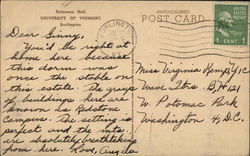 Entrance Hall
UNIVERSITY OF VERMONT
Burlington
HANDCOLORED
POST CARD
BURLINGTON
1 CENT 1
Dear Ginny,
You'd be right at
home here because
this dorm was
once the stable on
this estate. The group
of buildings here are
known as Redstone
Campus. The setting is
perfect and the mts.
are absolutely breathtaking
from here. Love,
Miss Virginia
Wave Qtrs. B
W. Potomac Park
Washington, D.C.